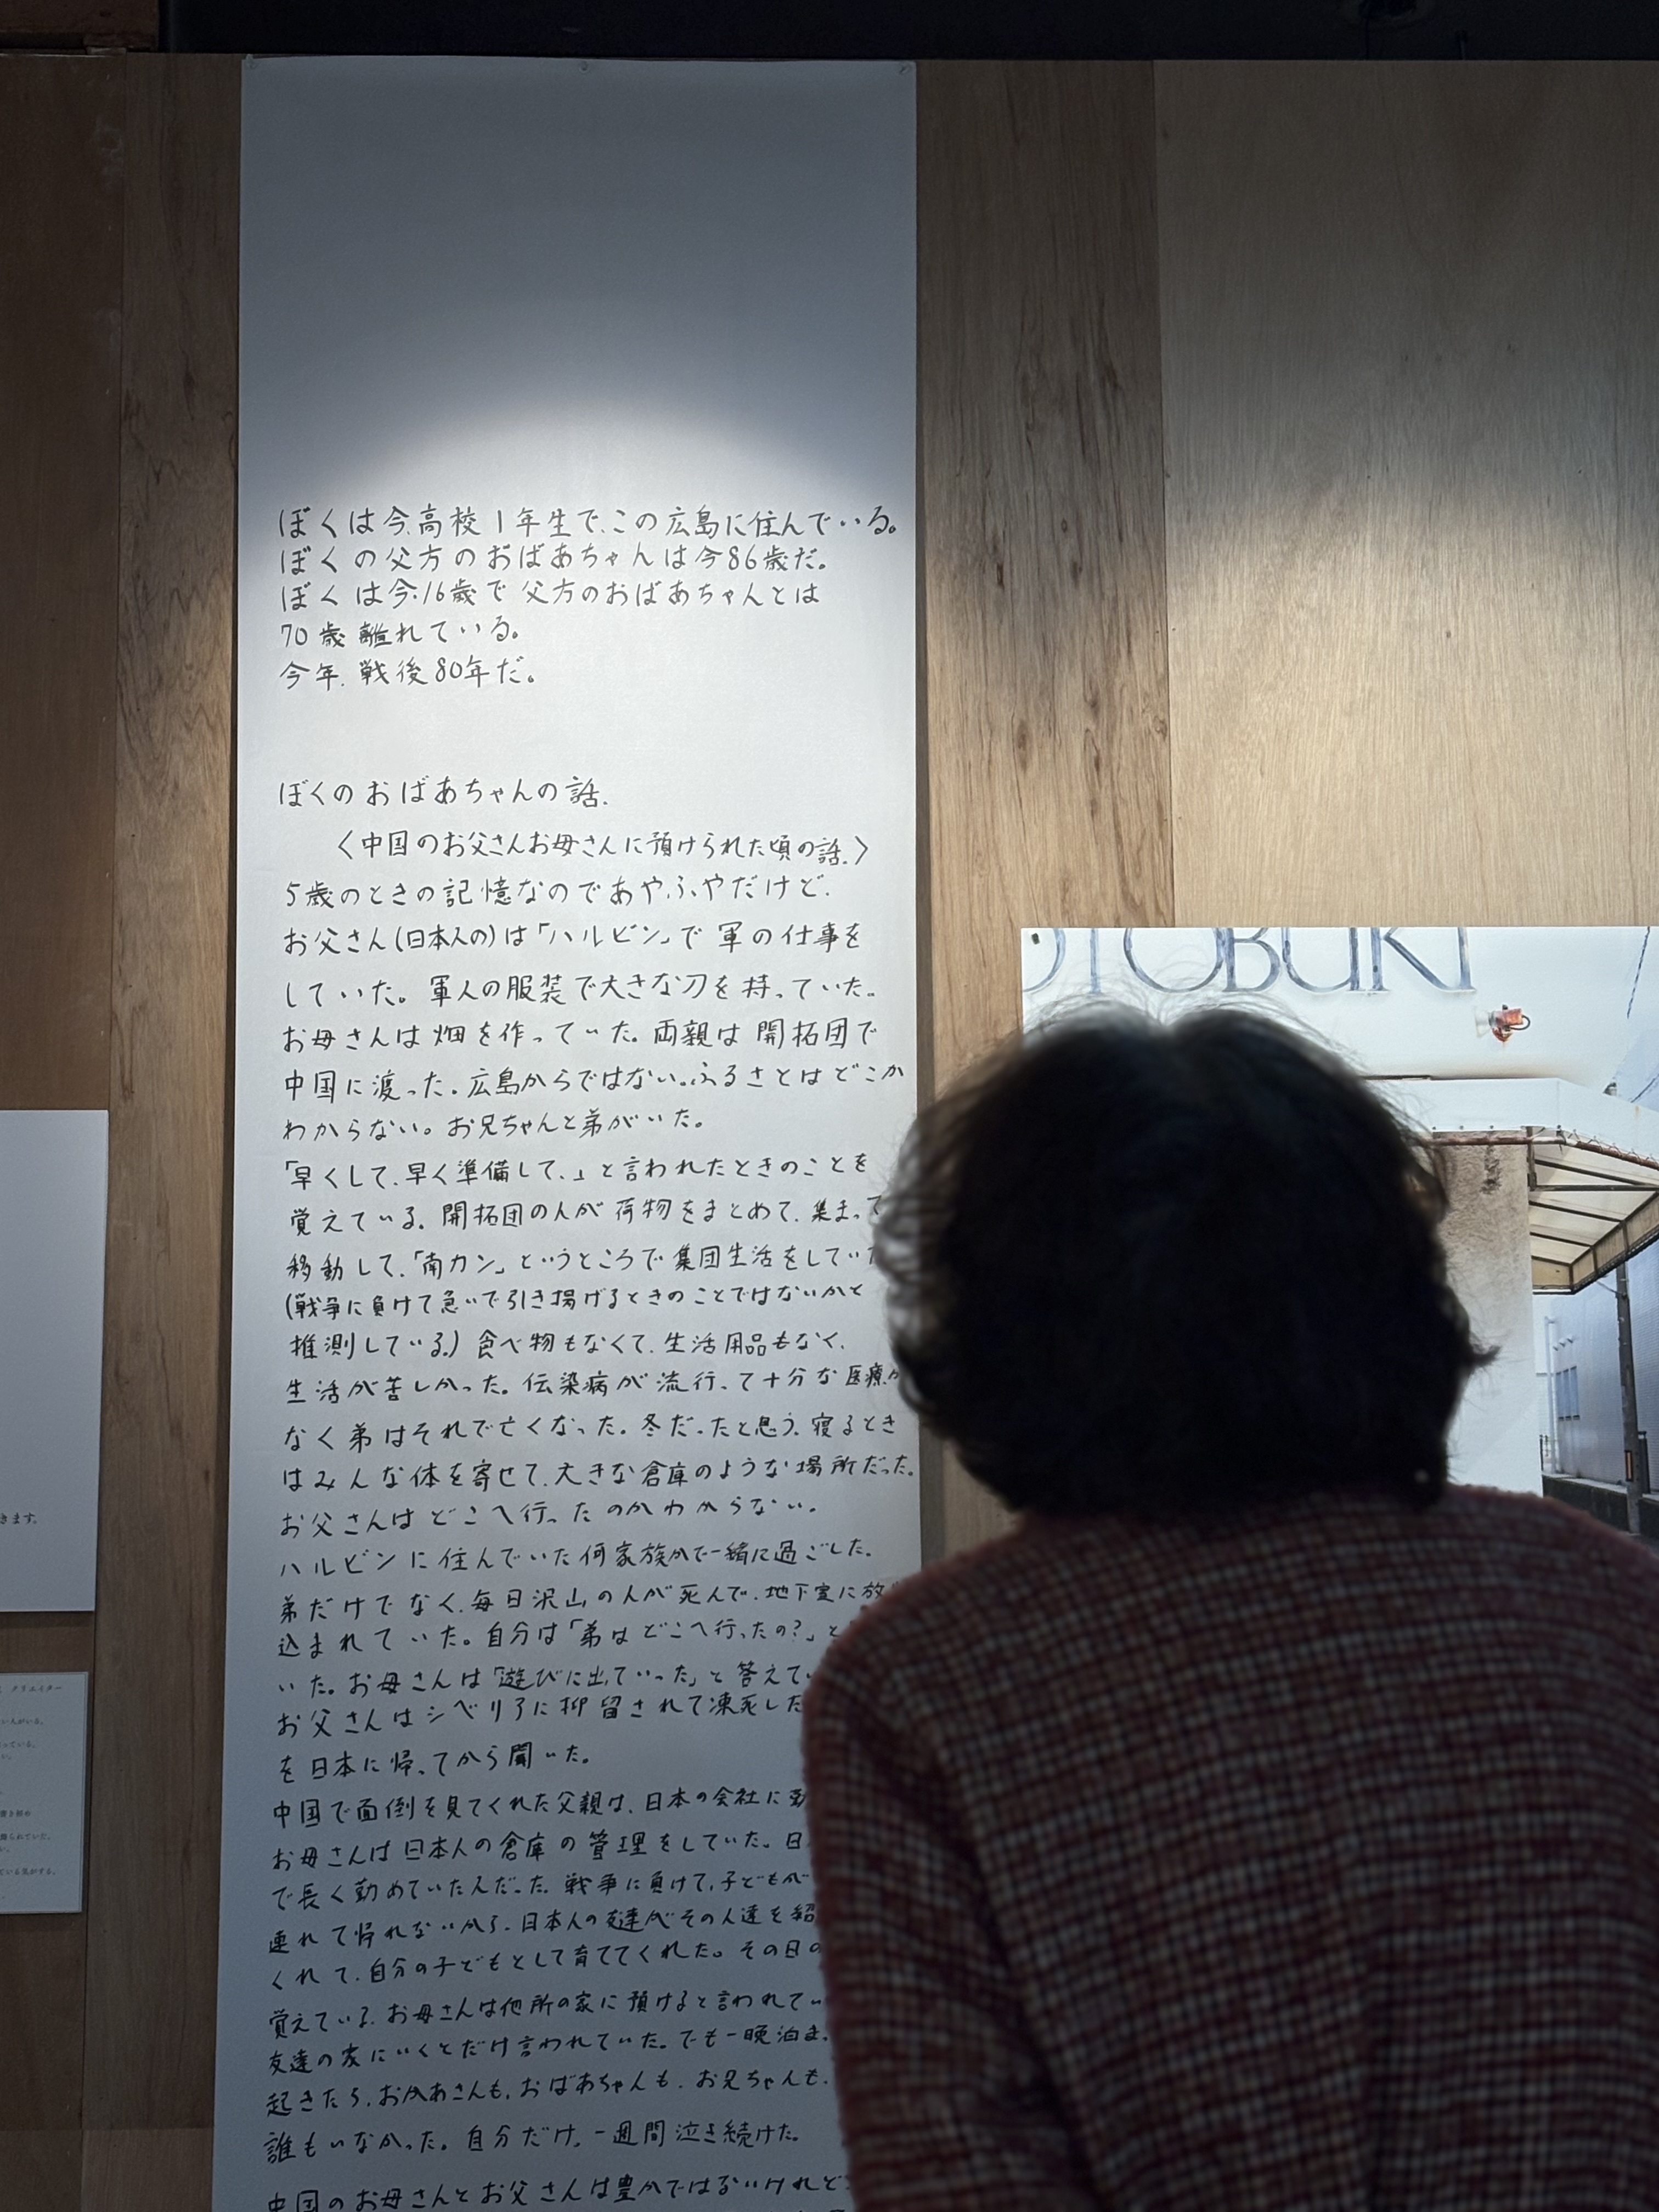 ぼくは今、高校1年生で、この広島に住んでいる。
ぼくの父方のおばあちゃんは今86歳だ。
ぼくは今、16歳で父方のおばあちゃんとは
70歳離れている。
今年、戦後80年だ。
ぼくのおばあちゃんの話。
〈中国のお父さんお母さんに預けられた頃の話。〉
5歳のときの記憶なのであやふやだけど、
お父さん(日本人の)は「ハルビン」で軍の仕事を
していた。軍人の服装で大きな刀を持っていた。
お母さんは畑を作っていた。両親は開拓団で
中国に渡った。広島からではない。ふるさとはどこか
わからない。お兄ちゃんと弟がいた。
「早くして、早く準備して、」と言われたときのことを
覚えている。開拓団の人が荷物をまとめて、集まって
移動して、「南カン」というところで集団生活をしていた
(戦争に負けて急いで引き揚げるときのことではないかと
推測している。)食べ物もなくて、生活用品もなく、
生活が苦しかった。伝染病が流行って十分な医療が
なく弟はそれで亡くなった。冬だったと思う。寝るとき
はみんな体を寄せて、大きな倉庫のような場所だった。
お父さんはどこへ行ったのかわからない。
ハルビンに住んでいた何家族かで一緒に過ごした。
弟だけでなく、毎日沢山の人が死んで、地下室に放
込まれていた。自分は「弟はどこへ行ったの?」と
いた。お母さんは「遊びに出ていった」と答えてい
お父さんはシベリアに抑留されて凍死した
を日本に帰ってから聞いた。
中国で面倒を見てくれた父親は、日本の会社に
お母さんは日本人の倉庫の管理をしていた。日
で長く勤めていた人だった。戦争に負けて、子どもが
連れて帰れないから、日本人の友達がその人達を紹
くれて、自分の子どもとして育ててくれた。その日の
覚えている。お母さんは他所の家に預けると言われてい
友達の家にいくとだけ言われていた。でも一晩泊ま
起きたら、おかあさんも、おばあちゃんも、お兄ちゃんも、
誰もいなかった。自分だけ、一週間泣き続けた。
中国のお母さんとお父さんは豊かではないけれど
OTOBUKI
きます。
クリエイター